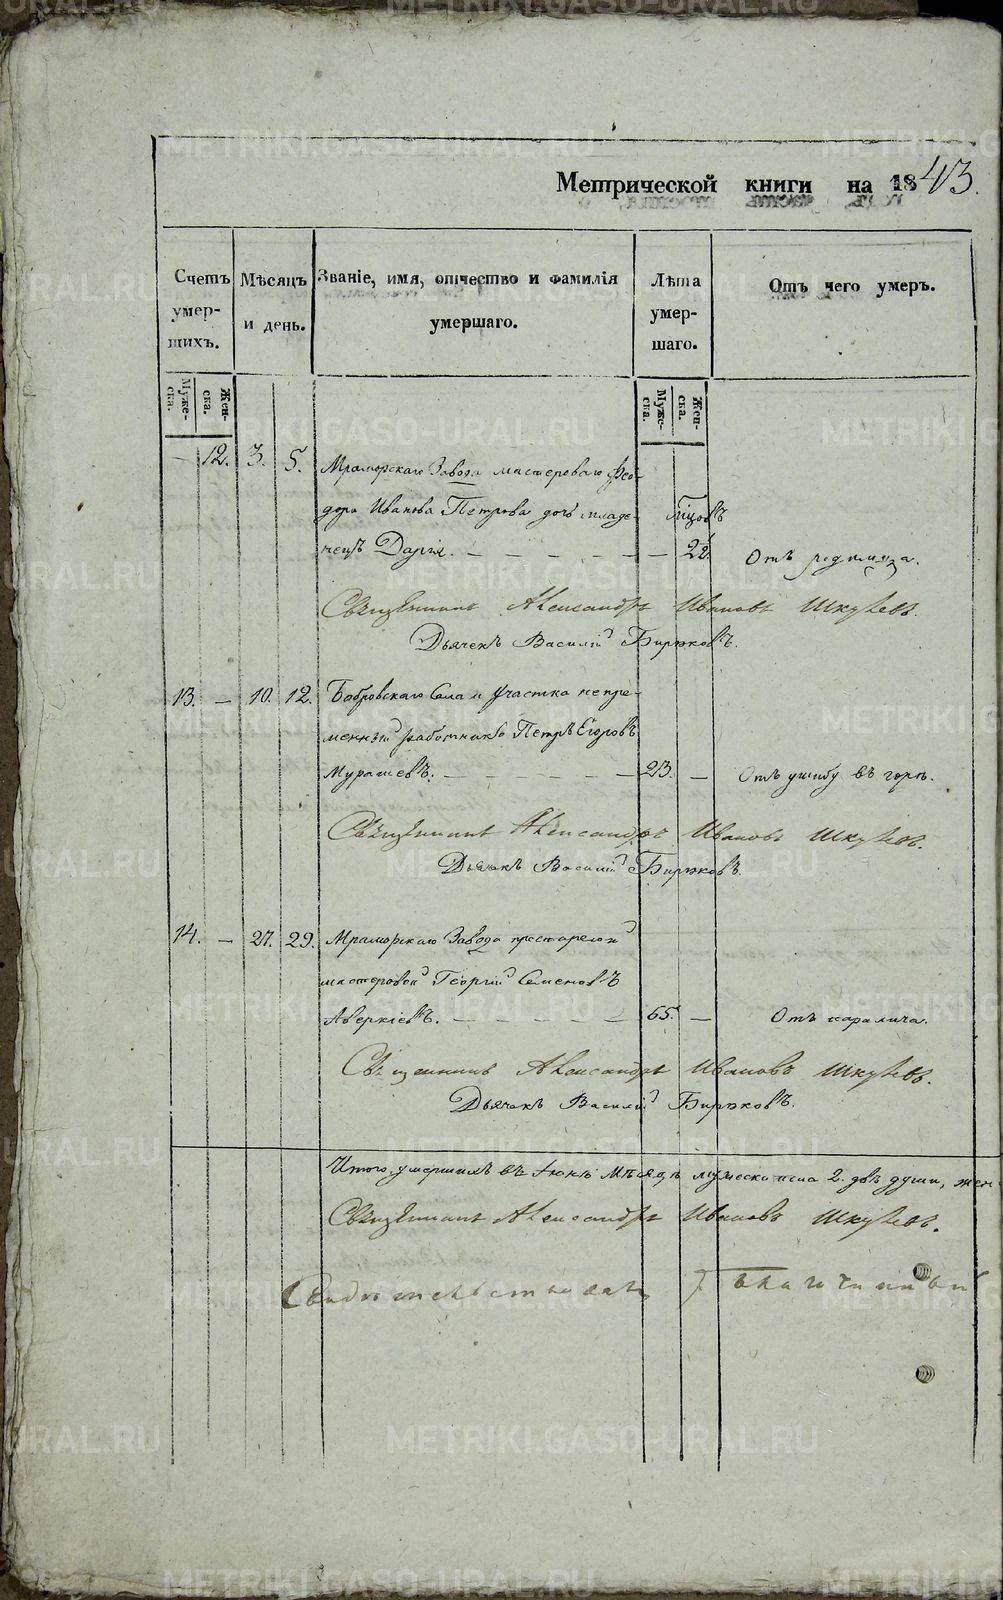 Метрической книги на 1843.
Счетъ умер-шихъ.
Мѣсяцъ и день.
Званіе, имя, отчество и фамилія умершаго.
Лѣта умер-шаго.
Отъ чего умеръ.
Муже-ска.
Жен-ска.
Муже-ска.
Жен-ска.
— 12. 3. 5. Мраморскаго Завода мастероваго Ѳео-
дора Иванова Петрова дочь младе-
нецъ Дарія. — — — — — — 2½. Отъ родимца.
Священникъ Александръ Ивановъ Шкулевъ.
Дьячекъ Василій Бирюковъ.
13. — 10. 12. Бобровскаго Села и Участка непре-
менный работникъ Петръ Егоровъ
Мурашевъ. — — — — — 23. — Отъ ушибу въ горѣ.
Священникъ Александръ Ивановъ Шкулевъ.
Дьячекъ Василій Бирюковъ.
14. — 27. 29. Мраморскаго Завода престарелой
мастеровой Георгій Семеновъ
Аверкіевъ. — — — — — 65. — Отъ паралича.
Священникъ Александръ Ивановъ Шкулевъ.
Дьячекъ Василій Бирюковъ.
Итого умершихъ въ Іюнѣ Мѣсяцѣ мужеска пола 2. двѣ души, жен
Священникъ Александръ Ивановъ Шкулевъ.
Свидѣтельствовалъ Благочинный
METRIKI.GASO-URAL.RU